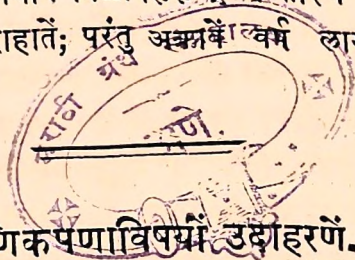 ाहातें; परंतु अठरावें वर्ष ला
मराठी ग्रंथ
णें.
णकपणाविषयीं उदाहरणें.